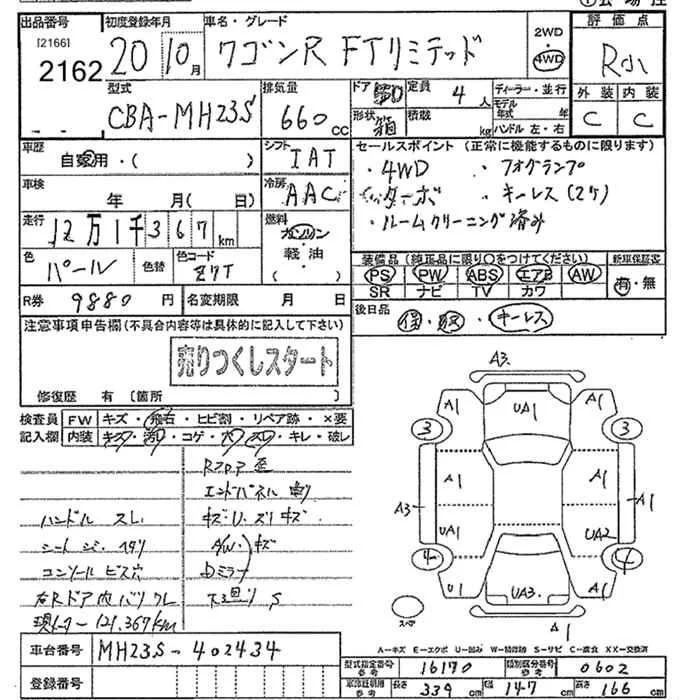 出品番号 初度登録年月 車名・グレード 2WD 評価点
[2166]
2162 20 10月 ワゴンR FTリミテッド 4WD R小
型式 排気量 ドア 5D 定員 4人 ディーラー・並行 外装 内装
CBA-MH23S 660cc 形状 箱 積載 kg モデル年式 年 C C
ハンドル 左・右
車歴 自家用・( ) シフト IAT セールスポイント (正常に機能するものに限ります)
・4WD ・フォグランプ
車検 年 月( 日) 冷房 AAC ・ターボ ・キーレス(2ケ)
走行 12万1千367km 燃料 ガソリン ・ルームクリーニング済み
軽・油
( )
色 パール 色替 色コード Z7T
装備品 (純正品に限り○をつけてください) 新車保証書
PS PW ABS エアB AW 有・無
SR ナビ TV カワ
R券 9880円 名変期限 月 日
後日品 保・取・キーレス
注意事項申告欄(不具合内容等は具体的に記入して下さい)
売りつくしスタート
修復歴 有 (箇所 )
検査員 FW キズ・飛石・ヒビ割・リペア跡・×要
記入欄 内装 キズ・汚レ・コゲ・穴・スレ・キレ・破レ
Rフロア歪
エンドパネル
ハンドル スレ キズ・U・ズリキズ
シート シミ・ヘタリ A/W キズ
コンソール ビス穴 ミラー
右Rドア内バリ ワレ 下廻り S
現メーター 121,367km
A3
A1 UA1 A1
3 3
A3 A1 A1 A1
UA1 UA2
4 4
U1 UA3 A1
スペア A1
A-キズ E-エクボ U-凹み W-補修跡 S-サビ C-腐食 XX-交換済
車台番号 MH23S-402434
登録番号
型式指定番号参考 16170 類別区分番号参考 0602
車検証明用参考 長さ 339cm 幅 147cm 高さ 166cm